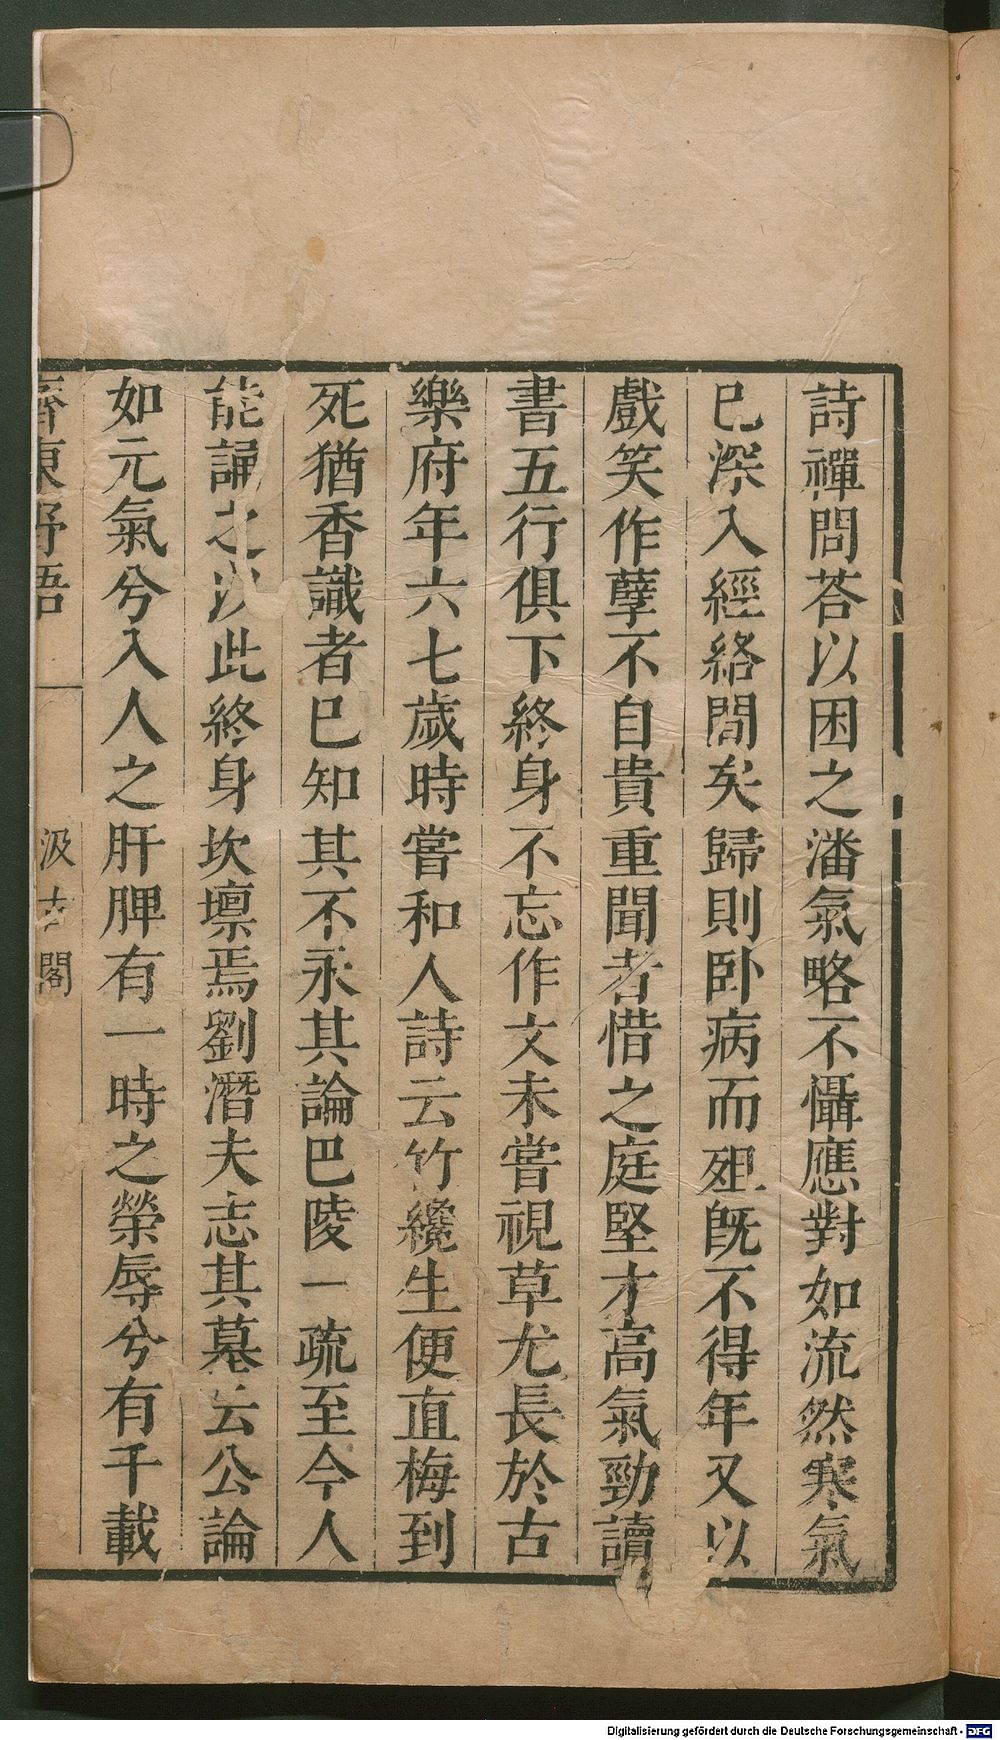 詩禪問荅以困之潘氣略不懾應對如流然寒氣
已深入經絡間矣歸則卧病而殂旣不得年又以
戲笑作孽不自貴重聞者惜之庭堅才高氣勁讀
書五行俱下終身不忘作文未嘗視草尤長於古
樂府年六七歲時嘗和人詩云竹纔生便直梅到
死猶香識者已知其不永其論巴陵一疏至今人
能誦之以此終身坎壈焉劉潛夫志其墓云公論
如元氣兮入人之肝脾有一時之榮辱兮有千載
齊東野語
汲古閣
Digitalisierung gefördert durch die Deutsche Forschungsgemeinschaft - DFG